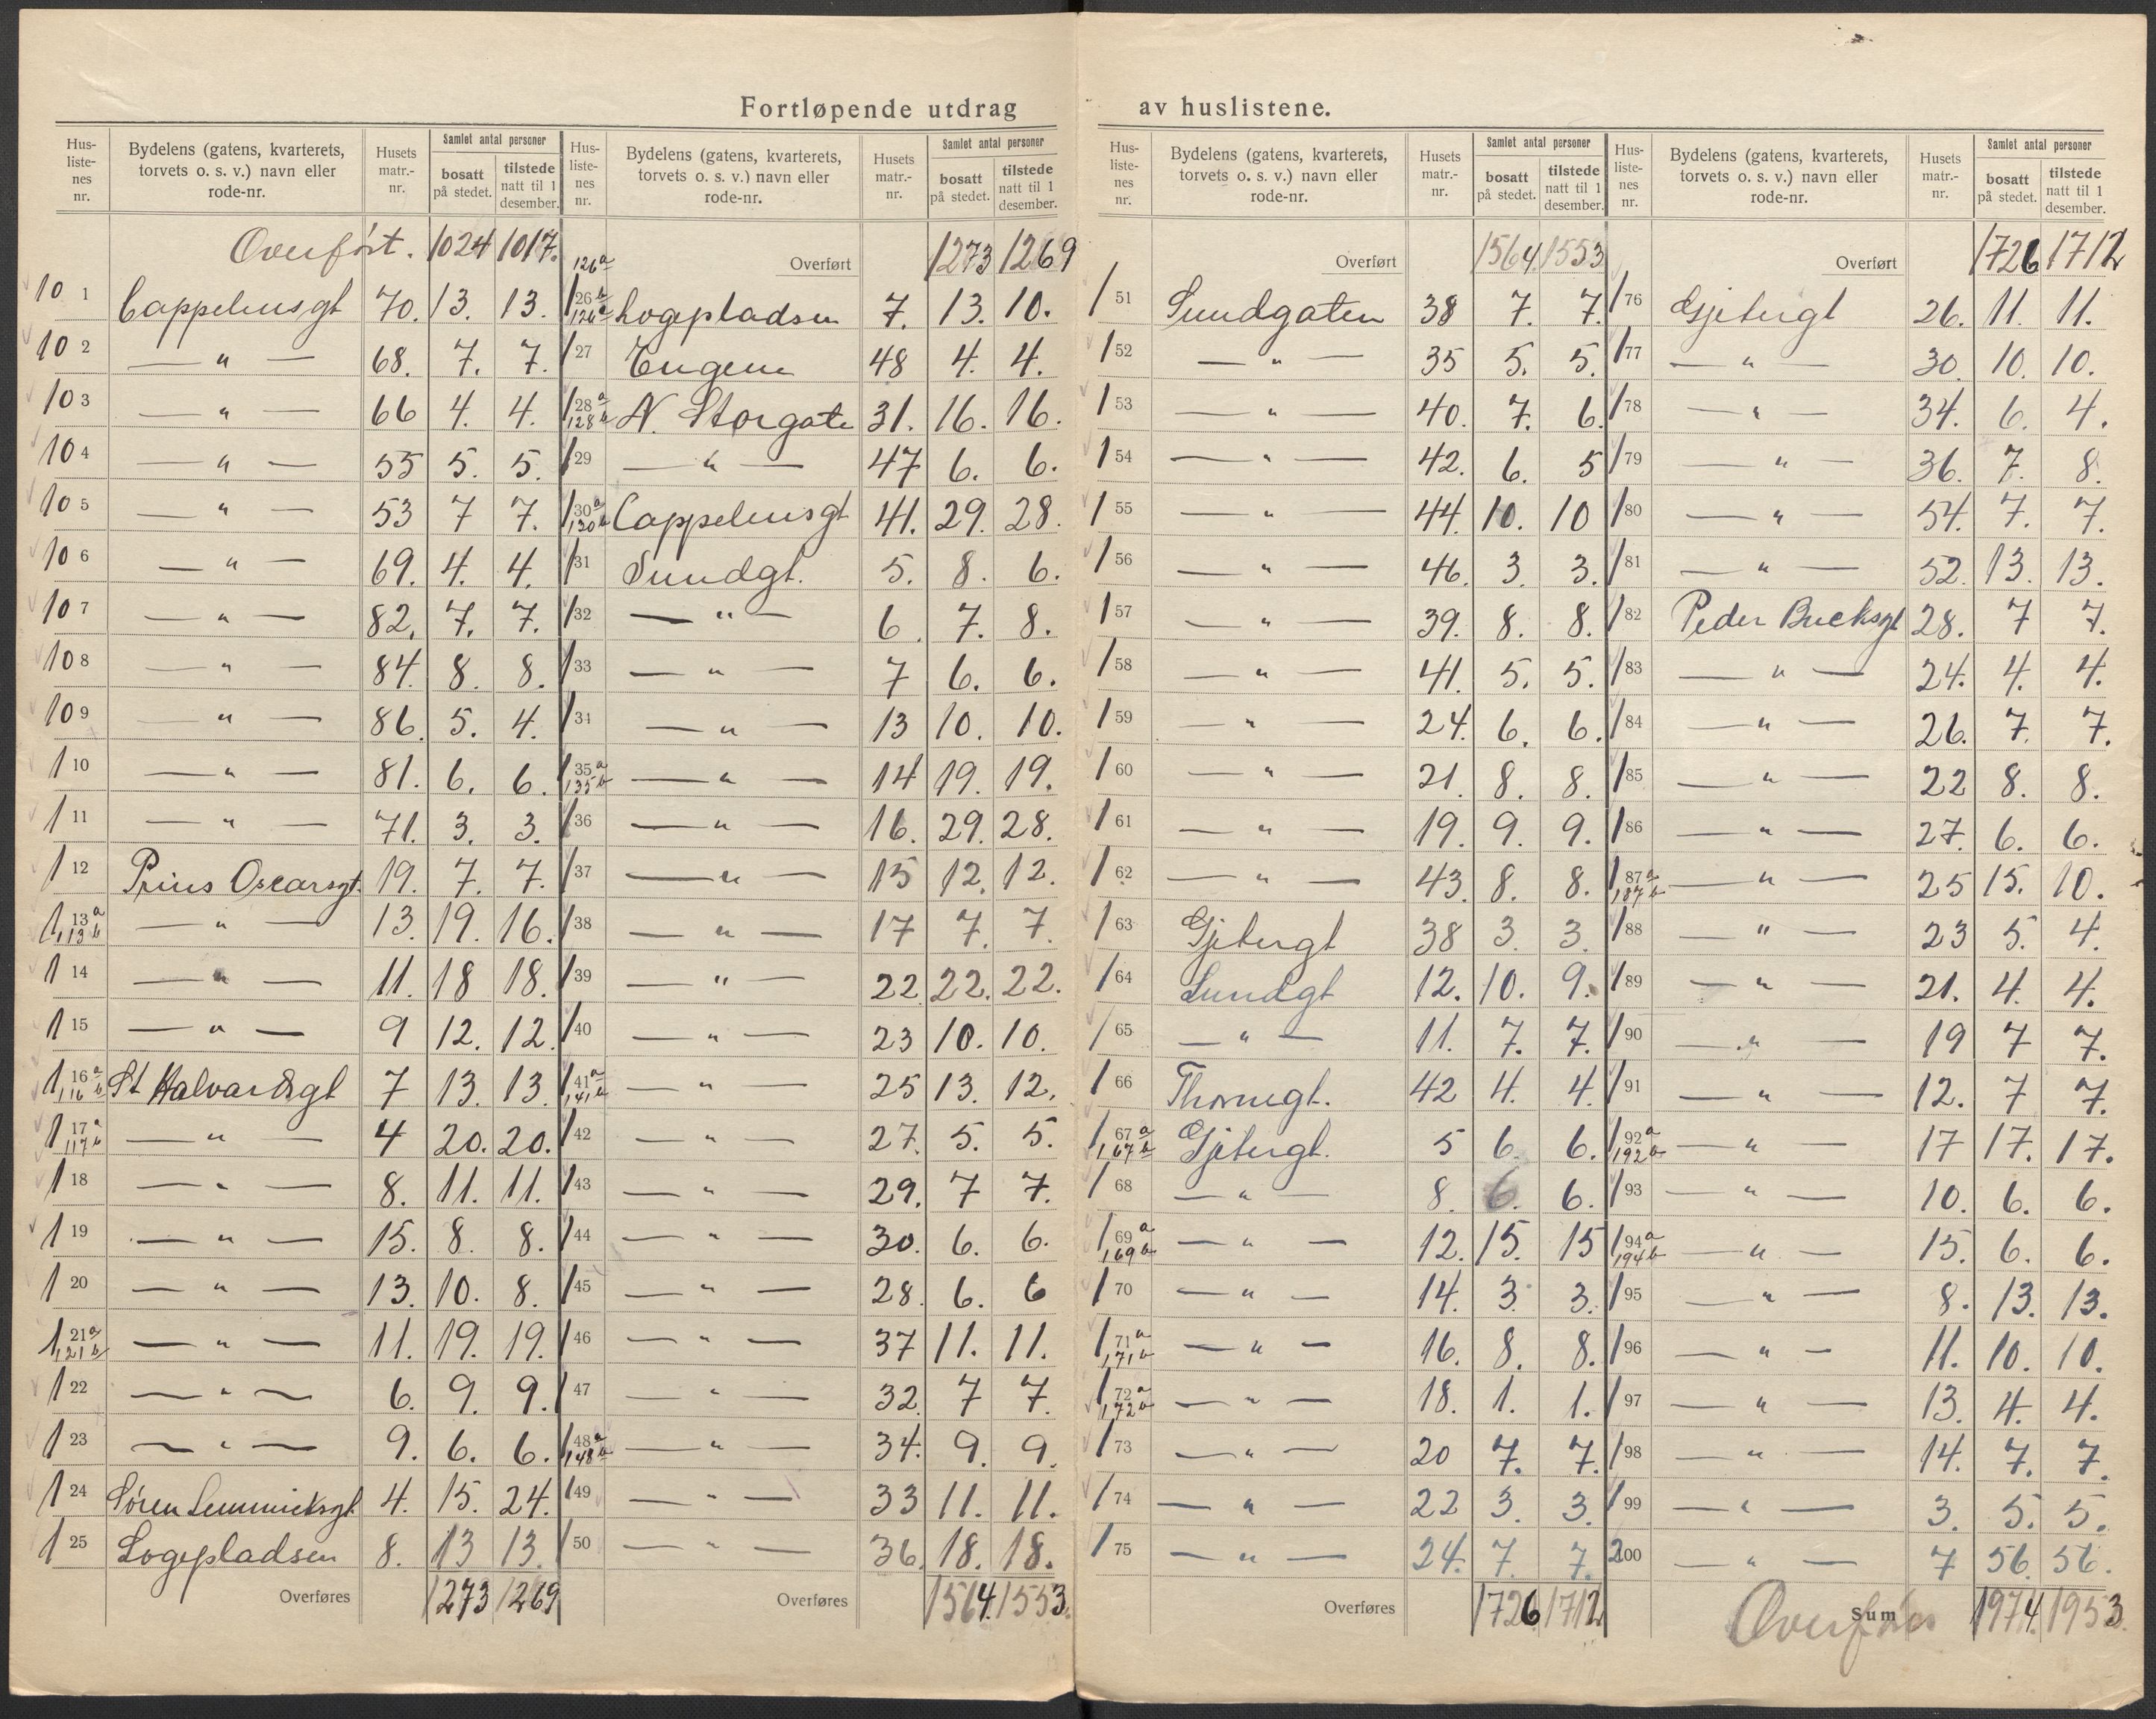 Fortløpende utdrag av huslistene.
Hus-liste-nes nr. Bydelens (gatens, kvarterets, torvets o. s. v.) navn eller rode-nr. Husets matr.-nr. Samlet antal personer bosatt på stedet. tilstede natt til 1 desember.
Overført. 1024 1017.
101 Cappelensgt 70. 13. 13.
102 — " — 68. 7. 7.
103 — " — 66 4. 4.
104 — " — 55 5. 5.
105 — " — 53 7 7.
106 — " — 69. 4. 4.
107 — " — 82. 7. 7.
108 — " — 84. 8. 8.
109 — " — 86. 5. 4.
110 — " — 81. 6. 6.
111 — " — 71. 3. 3.
112 Prins Oscarsgt. 19. 7. 7.
113a 113b — " — 13. 19. 16.
114 — " — 11. 18 18.
115 — " — 9 12. 12.
116a 116b St Halvardsgt 7 13. 13.
117a 117b — " — 4 20. 20.
118 — " — 8. 11. 11.
119 — " — 15. 8. 8.
120 — " — 13. 10. 8.
121a 121b — " — 11. 19. 19.
122 — " — 6. 9. 9.
123 — " — 9. 6. 6.
124 Søren Lemmichsgt 4. 15. 24.
125 Logepladsen 8. 13 13.
Overføres 1273 1269
Hus-liste-nes nr. Bydelens (gatens, kvarterets, torvets o. s. v.) navn eller rode-nr. Husets matr.-nr. Samlet antal personer bosatt på stedet. tilstede natt til 1 desember.
Overført 1273 1269
126a 126b 126c Logepladsen 7. 13. 10.
127 Engene 48 4. 4.
128a 128b N. Storgate 31. 16. 16.
129 — " — 47 6. 6.
130a 130b Cappelensgt 41. 29. 28.
131 Sundgt. 5. 8. 6.
132 — " — 6. 7. 8.
133 — " — 7 6. 6.
134 — " — 13 10. 10.
135a 135b — " — 14 19. 19.
136 — " — 16. 29. 28.
137 — " — 15 12. 12.
138 — " — 17 7. 7.
139 — " — 22 22. 22.
140 — " — 23 10. 10.
141a 141b — " — 25 13. 12.
142 — " — 27. 5. 5.
143 — " — 29. 7 7.
144 — " — 30. 6. 6.
145 — " — 28. 6. 6
146 — " — 37 11. 11.
147 — " — 32. 7 7.
148a 148b — " — 34. 9. 9.
149 — " — 33 11. 11.
150 — " — 36. 18. 18.
Overføres 1564. 1553.
Hus-liste-nes nr. Bydelens (gatens, kvarterets, torvets o. s. v.) navn eller rode-nr. Husets matr.-nr. Samlet antal personer bosatt på stedet. tilstede natt til 1 desember.
Overført 1564. 1553
151 Sundgaten 38 7. 7.
152 — " — 35 5. 5.
153 — " — 40. 7. 6.
154 — " — 42. 6. 5
155 — " — 44. 10. 10
156 — " — 46. 3. 3.
157 — " — 39. 8. 8.
158 — " — 41. 5. 5.
159 — " — 24. 6. 6.
160 — " — 21. 8. 8.
161 — " — 19. 9. 9.
162 — " — 43. 8. 8.
163 Gjetergt 38 3. 3.
164 Sundgt 12. 10. 9.
165 — " — 11. 7. 7.
166 Thornegt. 42 4. 4.
167a 167b Gjetergt. 5 6. 6.
168 — " — 8. 6. 6.
169a 169b — " — 12. 15. 15
170 — " — 14. 3. 3.
171a 171b — " — 16. 8. 8.
172a 172b — " — 18. 1. 1.
173 — " — 20 7. 7.
174 — " — 22 3. 3.
175 — " — 24. 7. 7.
Overføres 1726 1712
Hus-liste-nes nr. Bydelens (gatens, kvarterets, torvets o. s. v.) navn eller rode-nr. Husets matr.-nr. Samlet antal personer bosatt på stedet. tilstede natt til 1 desember.
Overført 1726 1712
176 Gjetergt 26. 11. 11.
177 — " — 30. 10. 10.
178 — " — 34. 6. 4.
179 — " — 36. 7. 8.
180 — " — 54. 7. 7.
181 — " — 52. 13. 13.
182 Peder Bucksgt 28. 7 7.
183 — " — 24. 4. 4.
184 — " — 26. 7. 7.
185 — " — 22 8. 8.
186 — " — 27. 6. 6.
187a 187b — " — 25 15. 10.
188 — " — 23 5. 4.
189 — " — 21. 4. 4.
190 — " — 19 7 7.
191 — " — 12. 7 7.
192a 192b — " 17 17. 17.
193 — " — 10. 6. 6.
194a 194b — " — 15. 6. 6.
195 — " — 8. 13. 13.
196 — " — 11. 10. 10.
197 — " — 13. 4. 4.
198 — " — 14. 7. 7.
199 — " — 3. 5. 5.
200 — " — 7 56. 56.
Overføres Sum 1974. 1953.